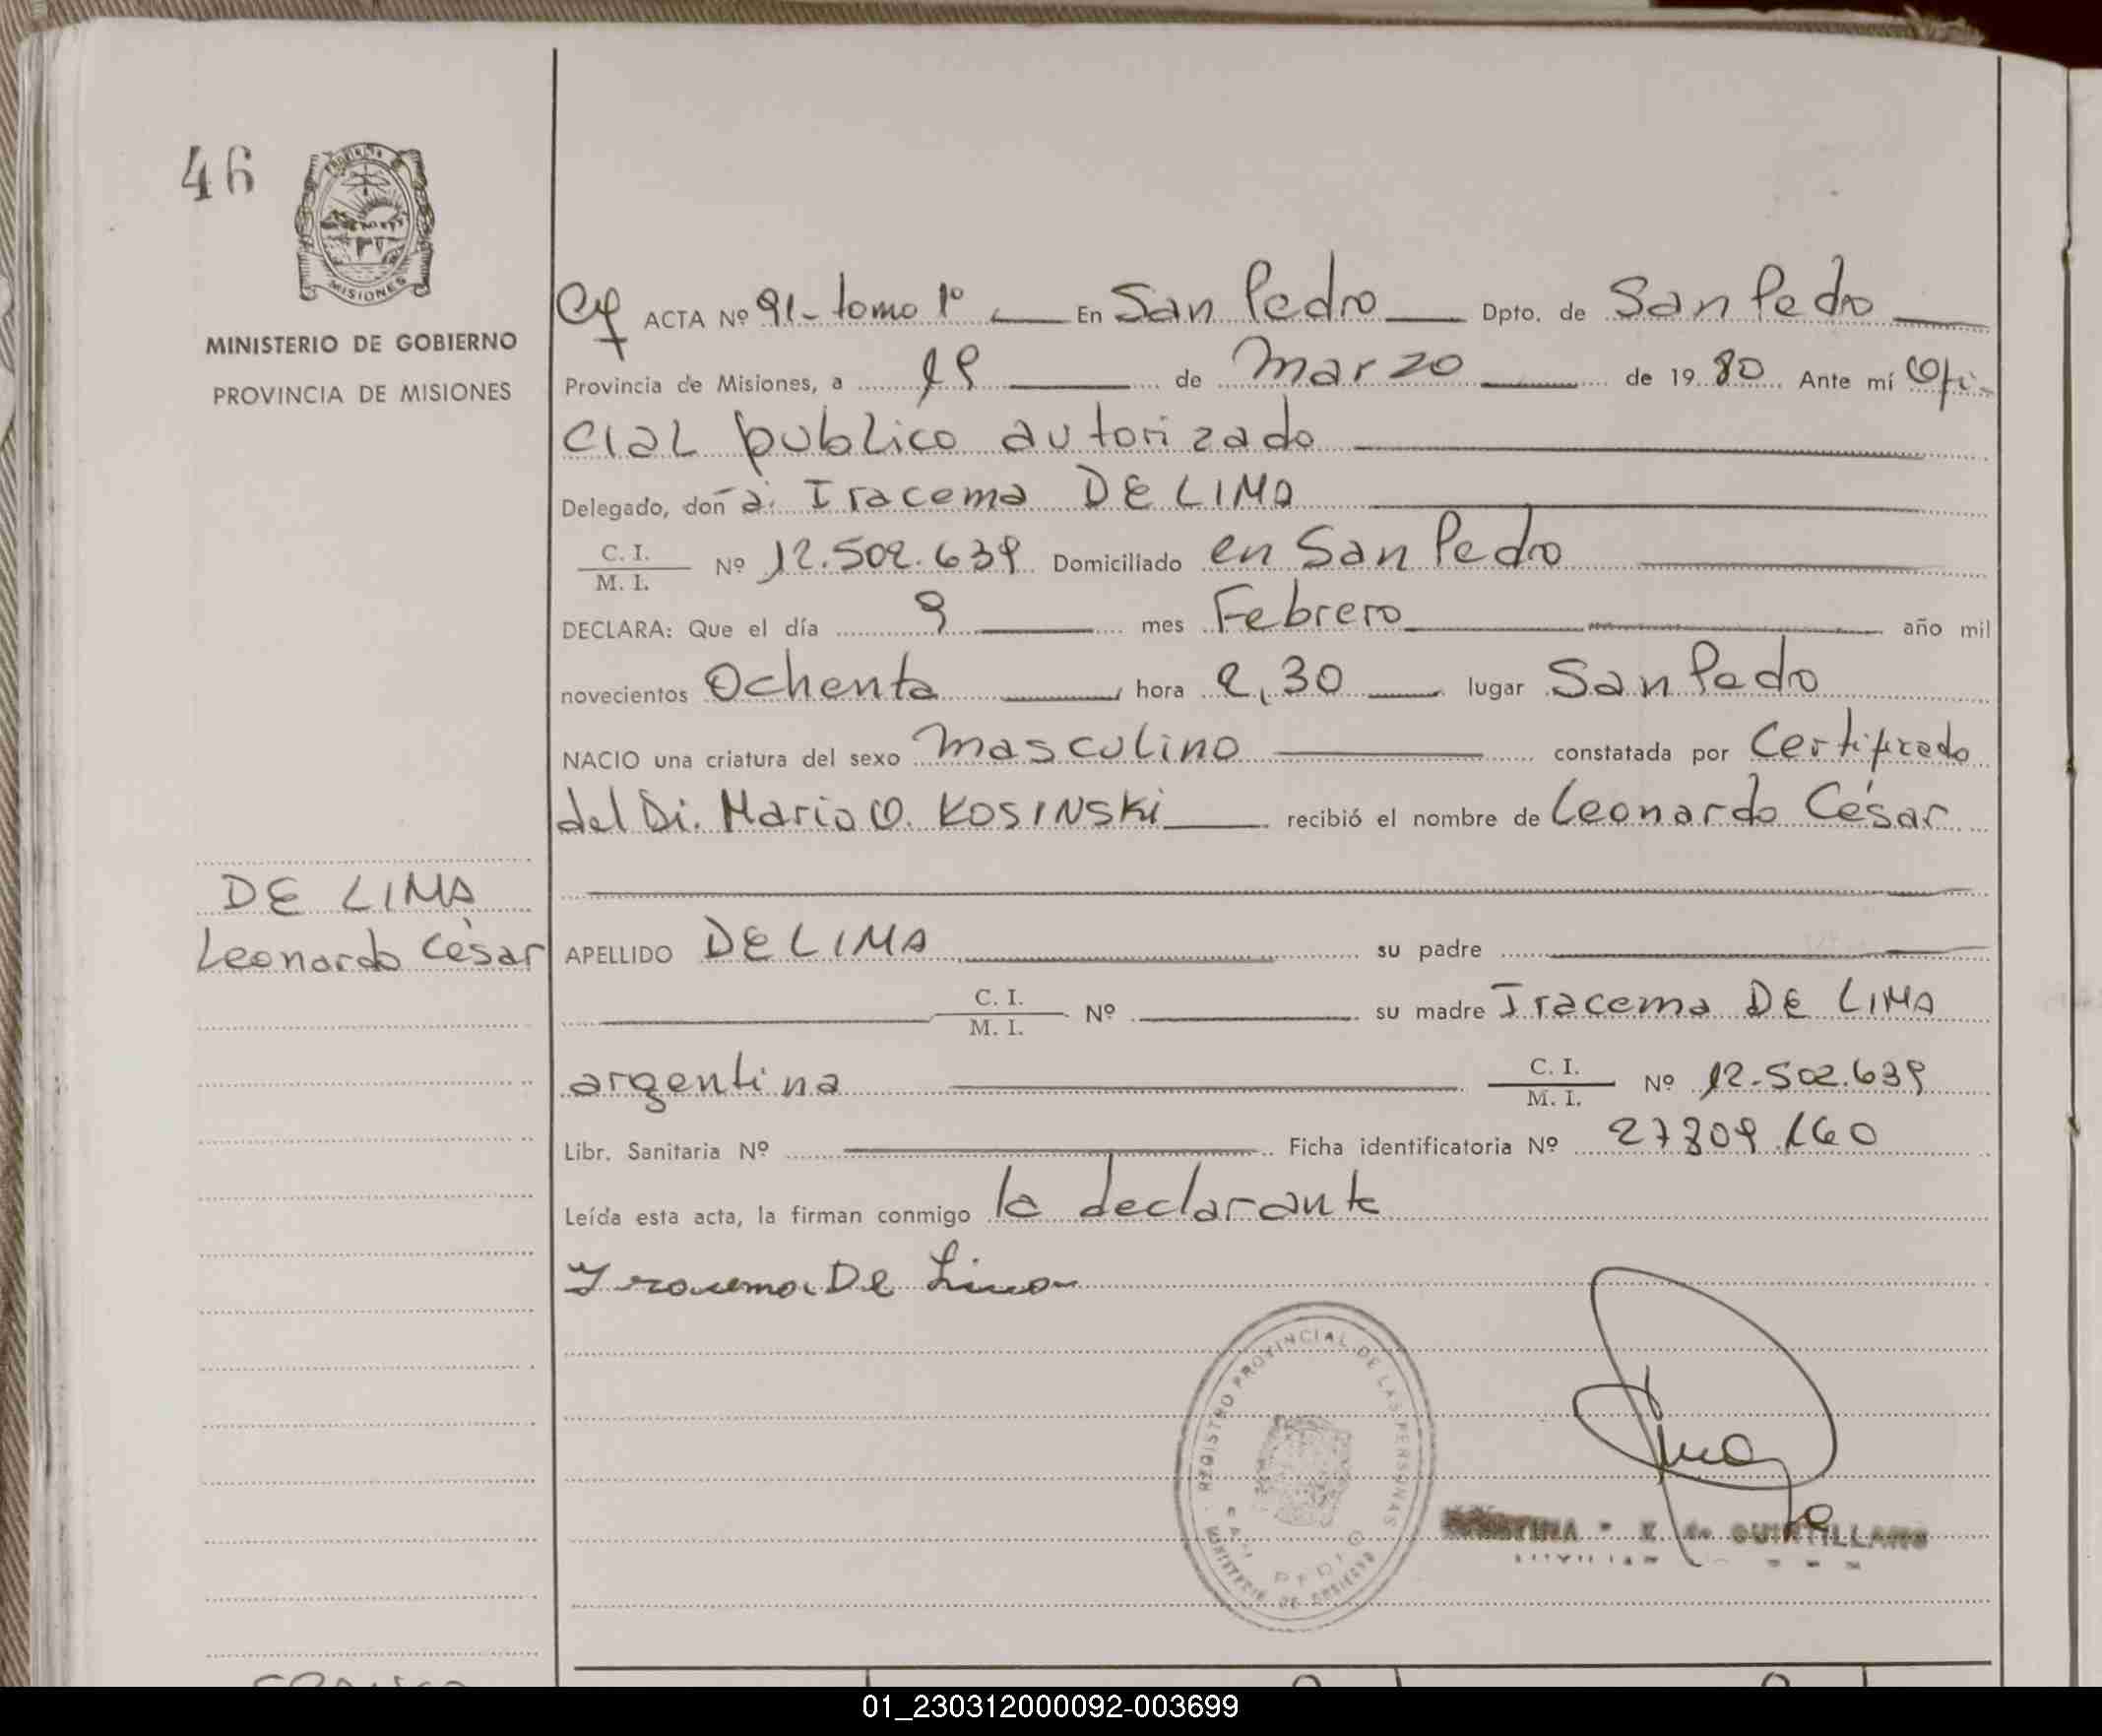 46
PROVINCIA
MISIONES
MINISTERIO DE GOBIERNO
PROVINCIA DE MISIONES
ACTA Nº 91- tomo 1º En San Pedro Dpto. de San Pedro
Provincia de Misiones, a 19 de Marzo de 1980 Ante mí Ofi-
cial publico autorizado
Delegado, doña. Iracema DE LIMA
C. I.
M. I. Nº 12.502.639 Domiciliado en San Pedro
DECLARA: Que el día 9 mes Febrero año mil
novecientos Ochenta hora 2,30 lugar San Pedro
NACIO una criatura del sexo masculino constatada por Certificado
del Dr. Mario O. KOSINSKI recibió el nombre de Leonardo César
DE LIMA
Leonardo César
APELLIDO DE LIMA su padre
C. I.
M. I. Nº su madre Iracema DE LIMA
argentina C. I.
M. I. Nº 12.502.639
Libr. Sanitaria Nº Ficha identificatoria Nº 27809.160
Leída esta acta, la firman conmigo la declarante
Yracema De Lima
REGISTRO PROVINCIAL DE LAS PERSONAS
SAN PEDRO
MINISTERIO DE GOBIERNO
de QUINTILLANO
01_230312000092-003699